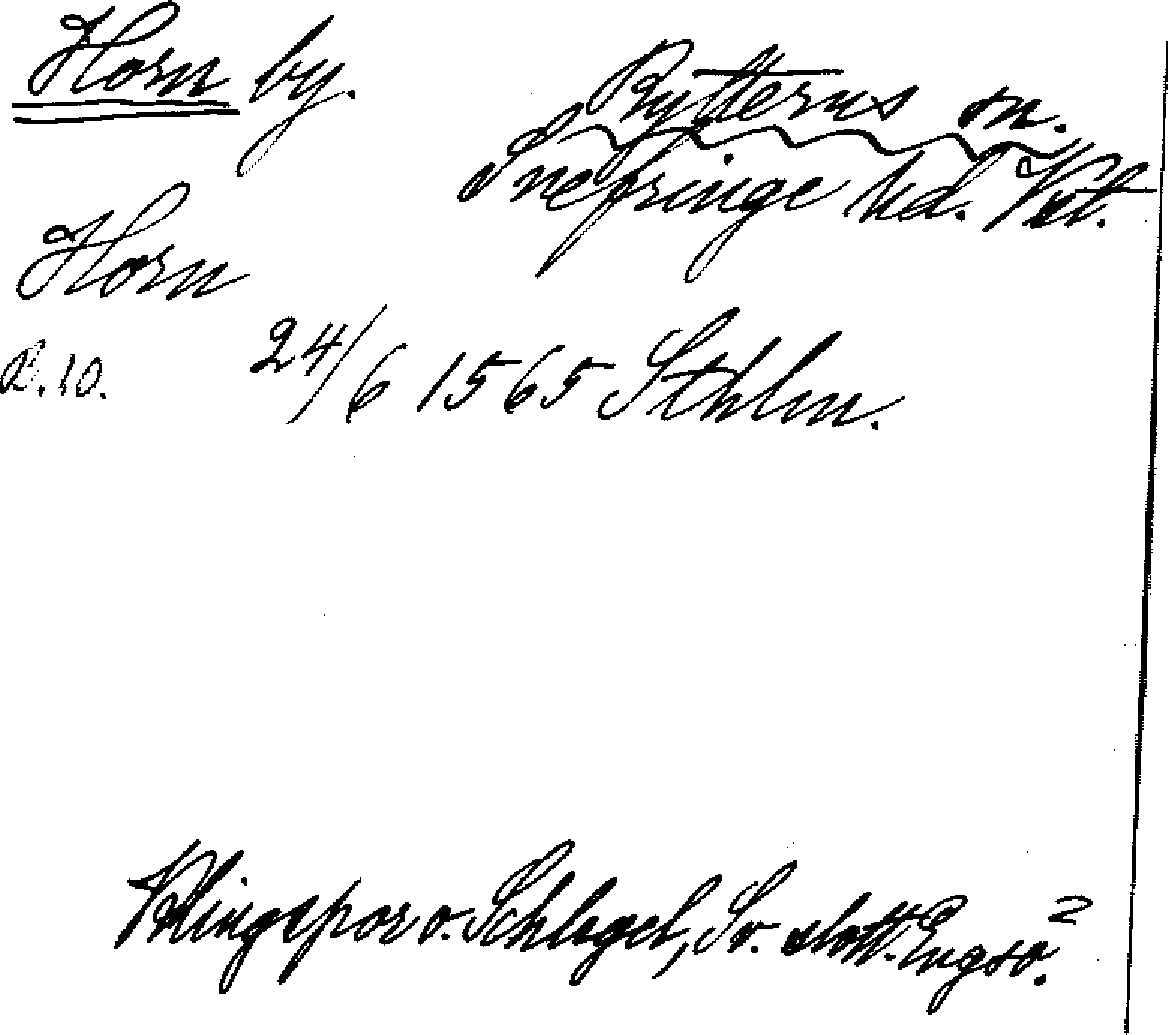 Horn by.
Rytterns sn.
Snefringe hd. Vstm.
Horn
B. 10.
24/6 1565 Sthlm.
Klingspor o. Schlegel, Sv. slott. Engsö. 2